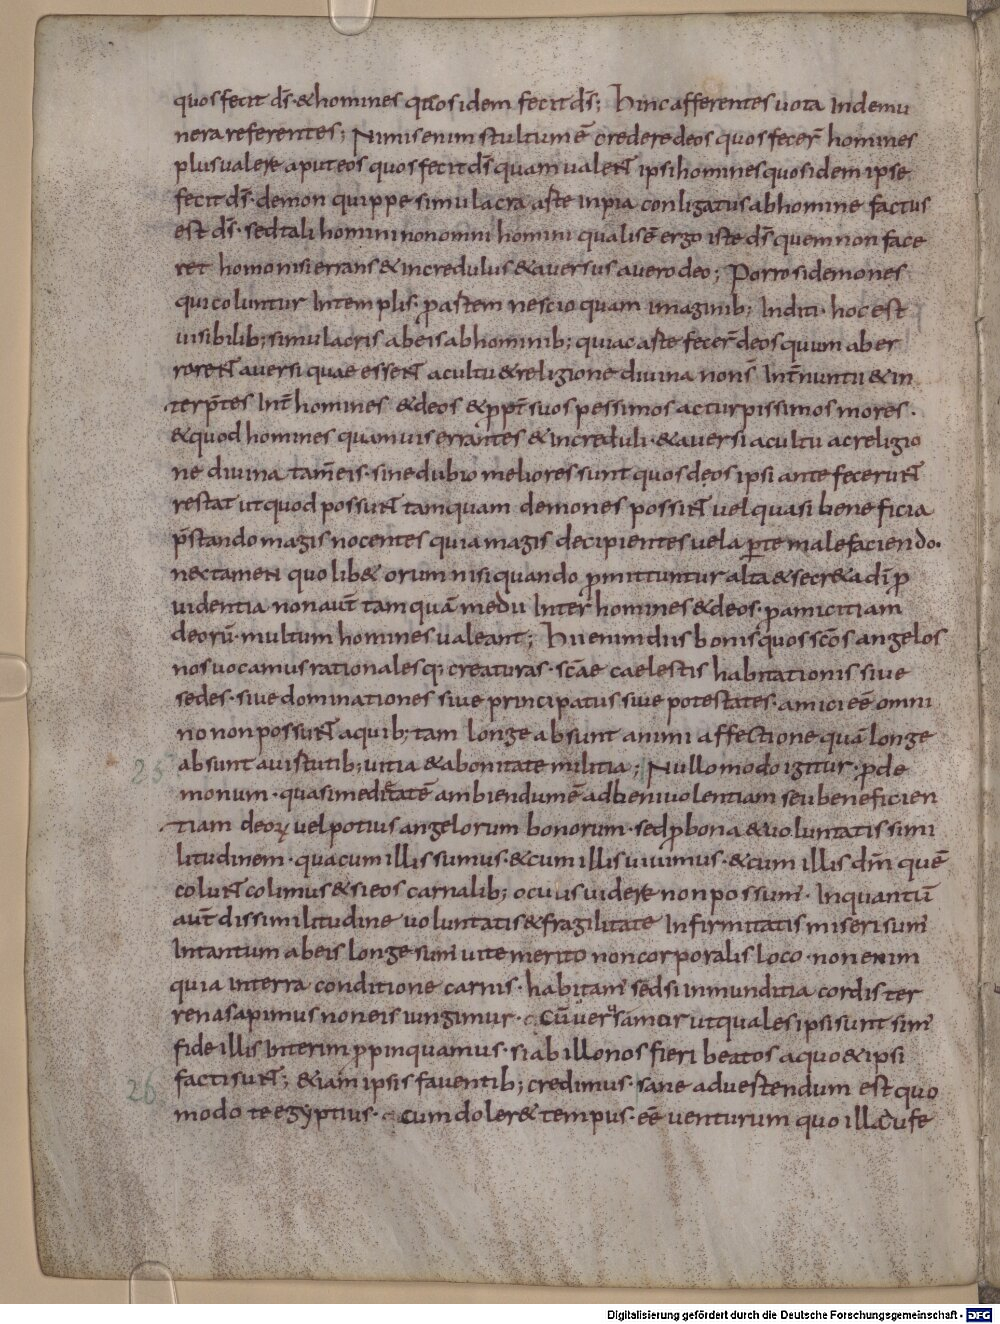 quos fecit d̄s · & homines quos idem fecit d̄s; Hinc afferentes uota Inde mu
nera referentes; Nimis enim stultum ē credere deos quos fecer̄ homines
plus ualere aput eos quos fecit d̄s quam ualent ipsi homines quos idem ipse
fecit d̄s · demon quippe simulacra afte Inpia conligatus ab homine factus
est d̄s · sed tali homini non omni homini qualis ē ergo iste d̄s quem non face
ret homo nisi errans & incredulus & auersus a uero deo; Porro si demones
qui coluntur Intemplis · p astem nescio quam imaginib; Inditi · hoc est
uisibilib; simulacris ab eis ab hominib; qui ac afte fecer̄ deos quum aber
rarent auersi quae essent a cultu & religione diuina non s̄ Int̄nuntii & in
terp̄tes Int̄ homines & deos & ppt̄ suos pessimos ac turpissimos mores ·
& quod homines quamuis errantes & increduli · & auersi a cultu ac religio
ne diuina tam̄ eis · sine dubio meliores sunt quos deos ipsi ante fecerunt
restat ut quod possunt tamquam demones possint uel quasi beneficia
p̄stando magis nocentes quia magis decipientes uel a perte male faciendo ·
nec tamen quo lib& orum nisi quando pmittuntur alta & secr&a dī p
uidentia non aut̄ tam quā medii Inter homines & deos · p amicitiam
deorū · multum homines ualeant; Hii enim diis bonis quos sc̄os angelos
nos uocamus rationales q; creaturas · sc̄ae caelestis habitationis siue
sedes · siue dominationes siue principatus siue potestates · amici eē omni
no non possunt a quib; tam longe absunt animi affectione quā longe
25 absunt a uirtutib; uitia & a bonitate militia; Nullo modo igitur · p de
monum · quasi medi&atē ambiendum ē ad beniuolentiam seu beneficien
tiam deoꝝ uel potius angelorum bonorum · sed p bona & uoluntatis simi
litudinem · qua cum illis sumus · & cum illis uiuimus · & cum illis dm̄ quē
colunt colimus & si eos carnalib; oculis uidere non possum̄ · Inquantū
aut̄ dissimilitudine uoluntatis & fragilitate Infirmitatis miseri sum̄
Intantum ab eis longe sum̄ uite merito non corporalis loco · non enim
quia Interra conditione carnis · habitam̄ sed si inmunditia cordis ter
rena sapimus non eis iungimur · Cū uero samcir ut quales ipsi sunt sim̄
fide illis Interim ppinquamus · si ab illo nos fieri beatos a quo & ipsi
26 facti sunt; & iam ipsis fauentib; credimus · sane aduertendum est quo
modo te egyptius · cum doler& tempus · eē uenturum quo illa cufe
Digitalisierung gefördert durch die Deutsche Forschungsgemeinschaft - DFG